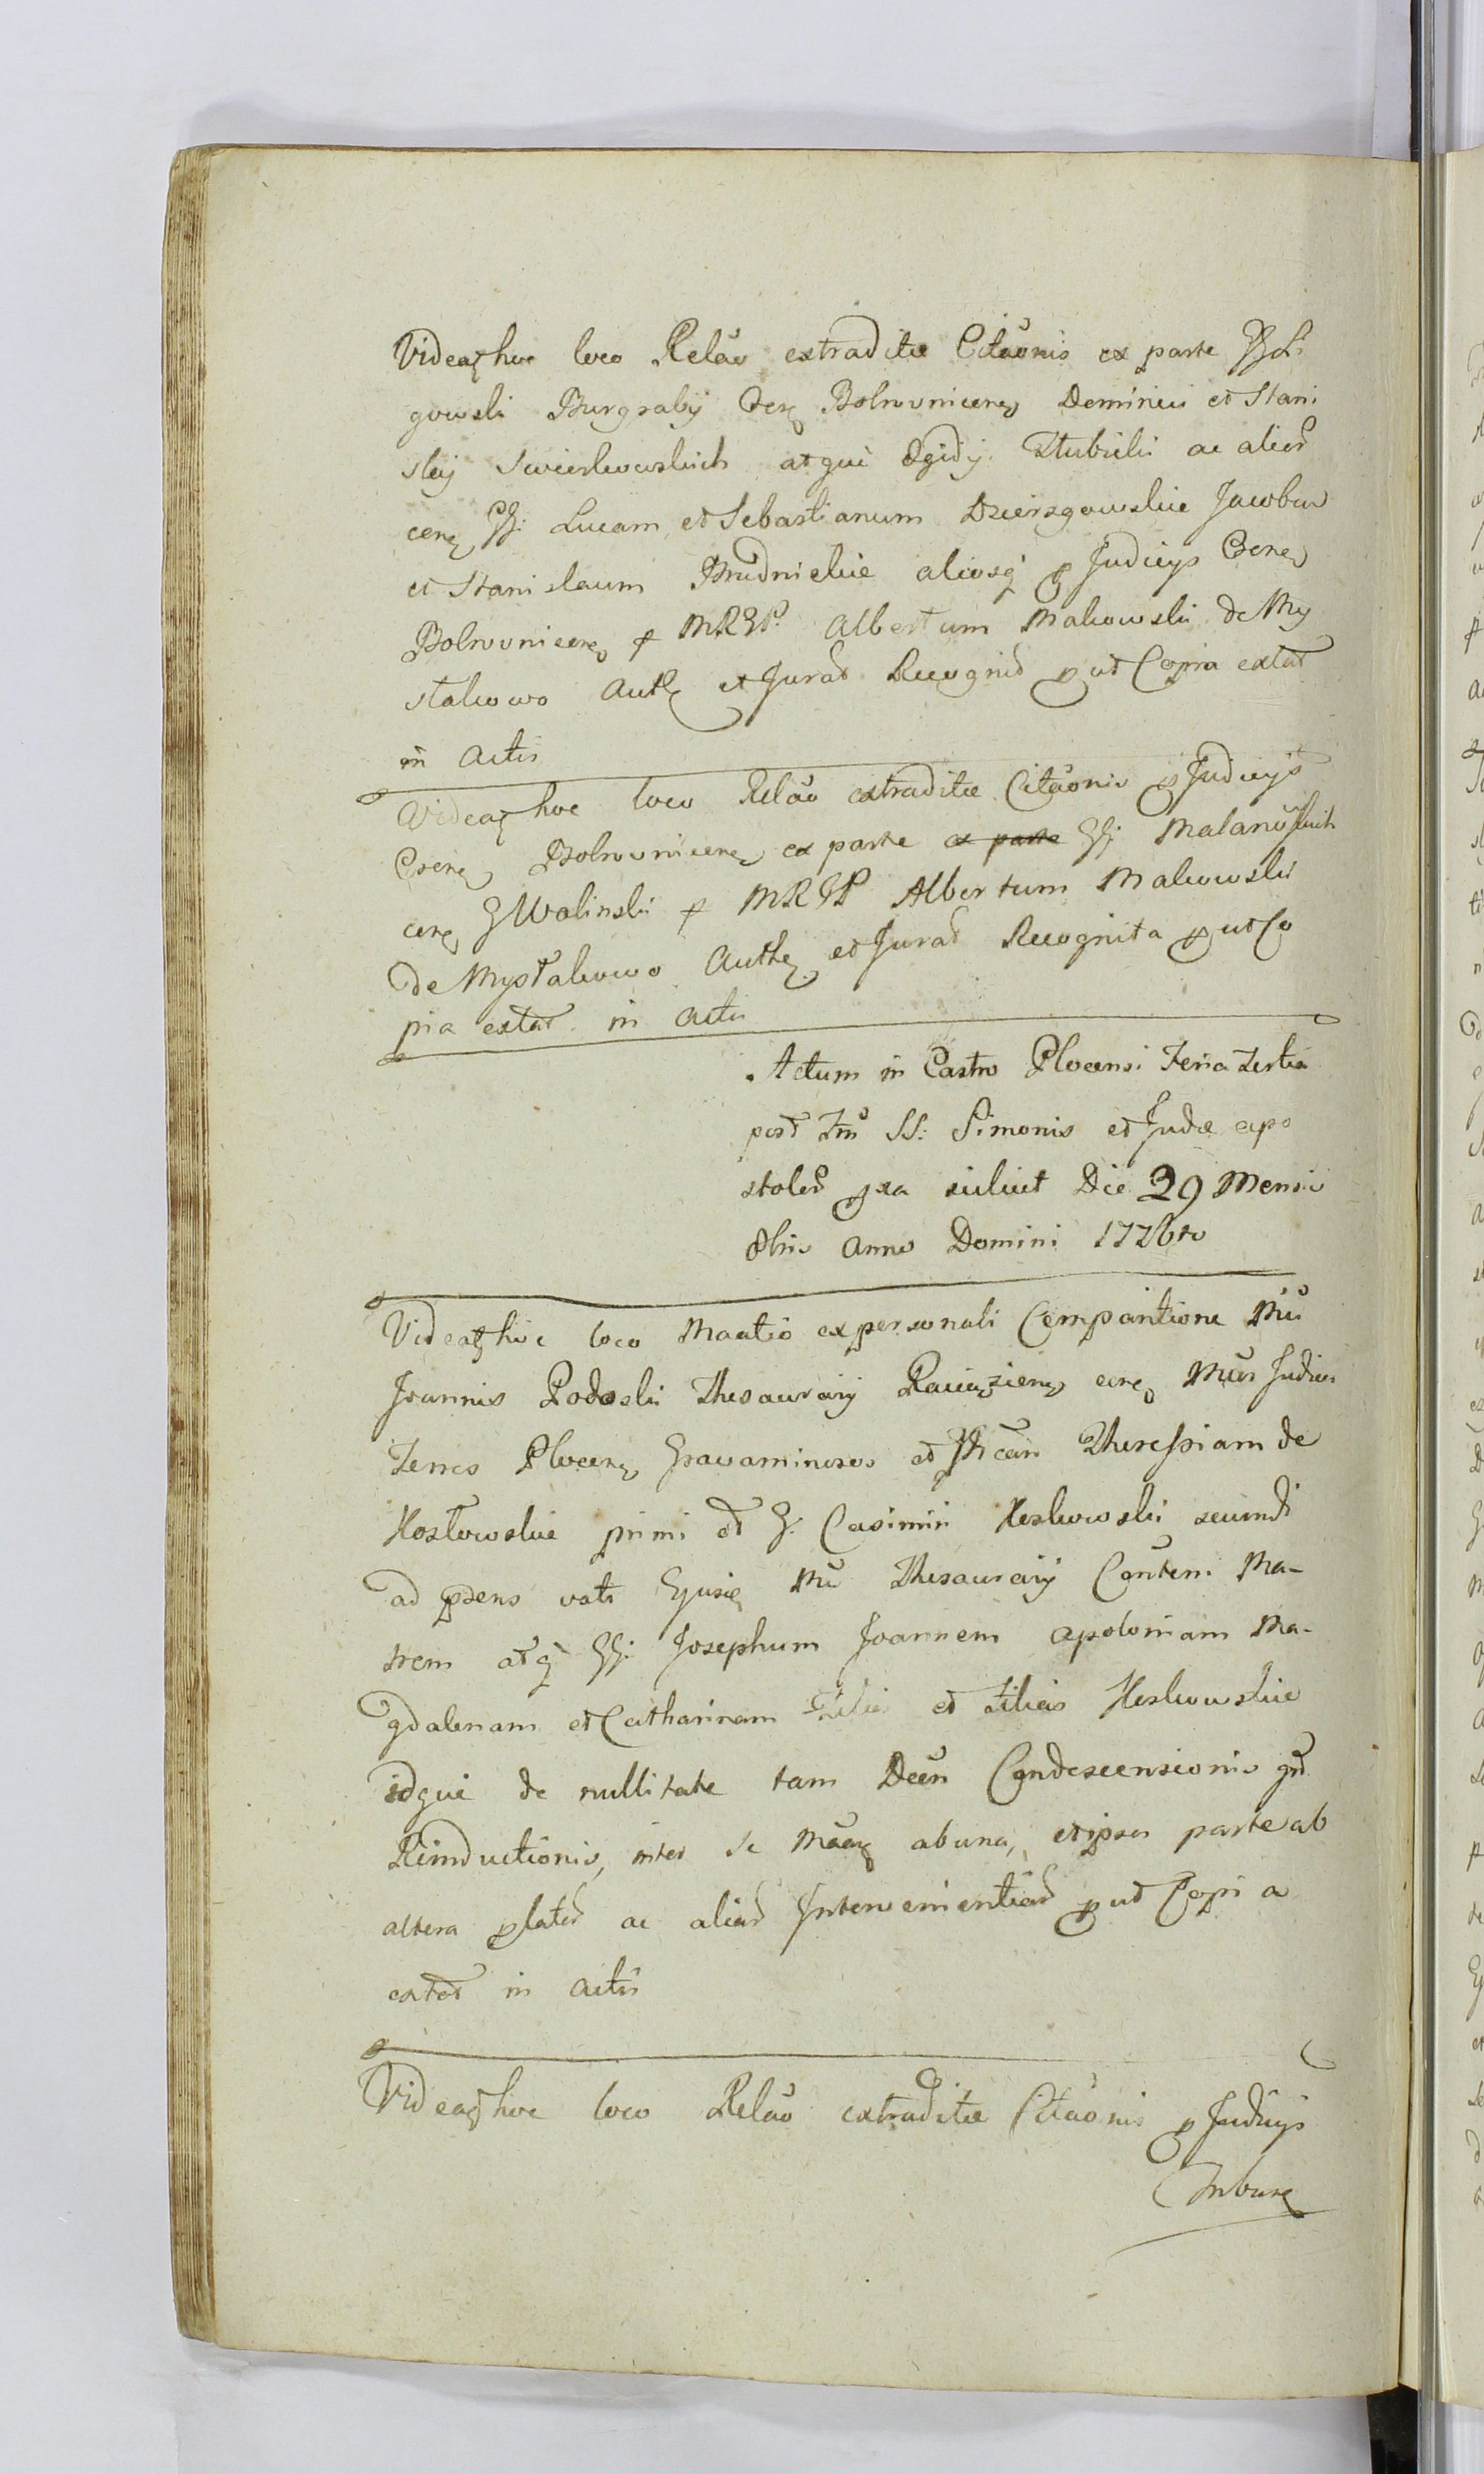 Videatq hoc loco Relão extraditæ Citãonis ex parte GG. Li
gowski Burgrabij Cerę Bobrovnicenę Dominici et Stani
slaij Swierkowskich atque Egidij Stubicki ac aliorz
cenę GG: Lucam et Sebastianum Dzierzgowskie Jacobum
et Stanislaum Brudnickie aliosq p Judicys Csenę
Bobrovnicenę p MRGP. Albertum Makowski de My
stakowo Auth et Jurat Recognit put Copia extat
in Actis
Videatq hoc loco Relão extraditæ Citãonis p Judicys
Csenę Bobrovnicenę ex parte ex parte GG: Malanowskich
cenę G Wolinski p MRGP Albertum Makowski
de Mystakowo Authę et Jurat Recognita put Co
pia extat in Actis
Actum in Castro Plocensi Feria Tertia
post Fm̃ SS: Simonis et Judæ Apo
stolorz pxa Die 29 Mensis
8bris Anno Domini 1726to
Videatq hoc loco Maatio ex personali Comparitione Mci
Joannis Podoski Thesaurarij cenę Mcos Judices
Terres Plocenę Gravaminosos et Theressiam de
Kosłowskie primi et G. Casimiri Heskowski secundi
ad psens voti Ejusdę Mci Thesaurarij Contem Ma-
trem atq GG: Josephum Joannem Apoloniam Ma-
gdalenam et Catharinam Filios et Filias Heskowskie
idque de nullitate tam Decti Condescensionis qm
Reinductionis, inter se ab una, et ipsos parte ab
altera platorz ac aliarz Intervenientiarz put Copia
extat in Actis
Videatq hoc loco Relão extraditæ Citãonis p Judicys